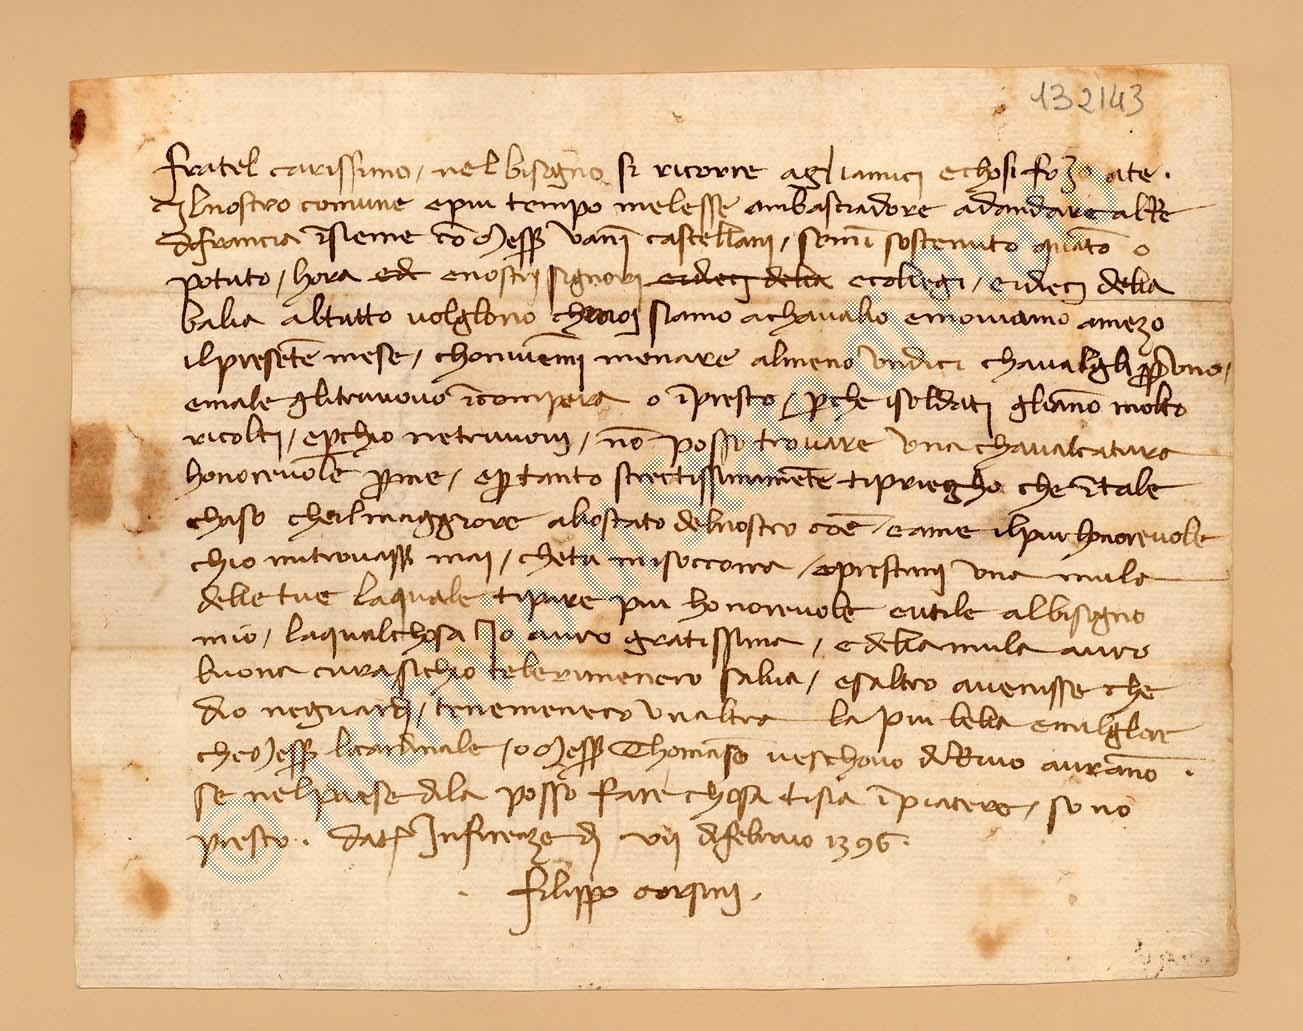 132143
fratel carissimo / nel bisogno si ricorre agliamici echosi fo io ate .
Ilnostro comune e piu tempo melesse ambasciadore adandare alRe
difrancia īsieme cō Messer vanni castellani / sommi sostenuto quāto o
potuto / hora edc enostri signori eidieci della ecollegi / eidieci della
balia altutto volglono chenoi siamo achavallo emoviamo amezo
ilpresēte mese / chonviēmi menare almeno undici chavalgli per uno /
emale glitruovo īcompera o īpresto / perche isoldati gliāno molto
ricolti / e perchio netruovi / nō posso trovare una chavalcatura
honorevole perme / e pertanto strettissimamēte tipriegho che ītale
chaso cheilmaggiore allostato delnostro coē / eame ilpiu honorevole
chio mitrovassi mai / chetu misoccorra / eprestimi una mula
delle tue laquale tipare piu honorevole eutile albisogno
mio / laqualchosa Io auro gratissima / e della mula auro
buona cura sichio telarimenero salva / esaltro avenisse che
dio neguardi / tenemenero unaltra la piu bella emilglore
cheMesser lcardinale / o Messer Thomaso veschovo di auranno .
se nelpaese dila posso fare chosa tisia īpiacere / sono
presto . Dat Infirenze di vii difebraio 1396 .
. filippo corsini .